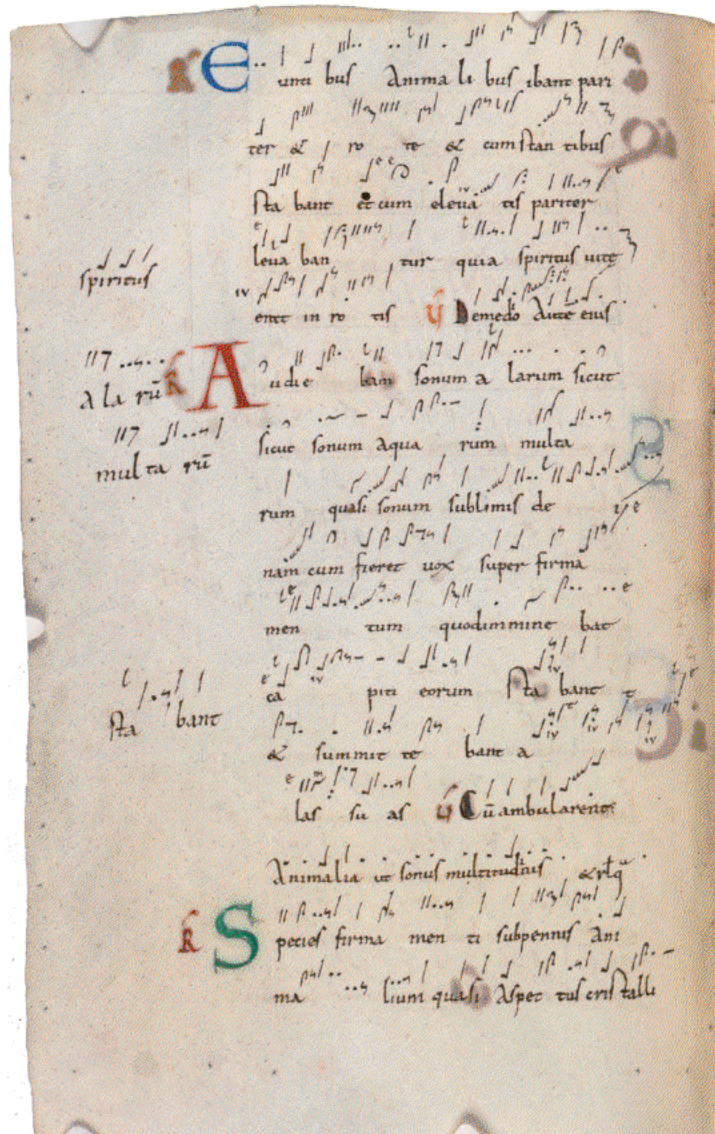 R E unti bus Anima li bus ibant pari
ter & ro te & cum stan tibus
sta bant et cum eleva tis pariter
leva ban tur quia spiritus vite
spiritus
erat in ro tis ℣ De medio Aute eius
R A udie bam sonum a larum sicut
A la rū
sicut sonum aqua rum multa
multa rū
rum quasi sonum sublimis de
nam cum fieret vox super firma
men tum quod immine bat
ca piti eorum sta bant
sta bant
& summit te bant a
las su as ℣ Cū ambularent
Animalia ut sonus multitudinis
R S pecies firma men ti sub pennis Ani
ma lium quasi Aspec tus cristalli